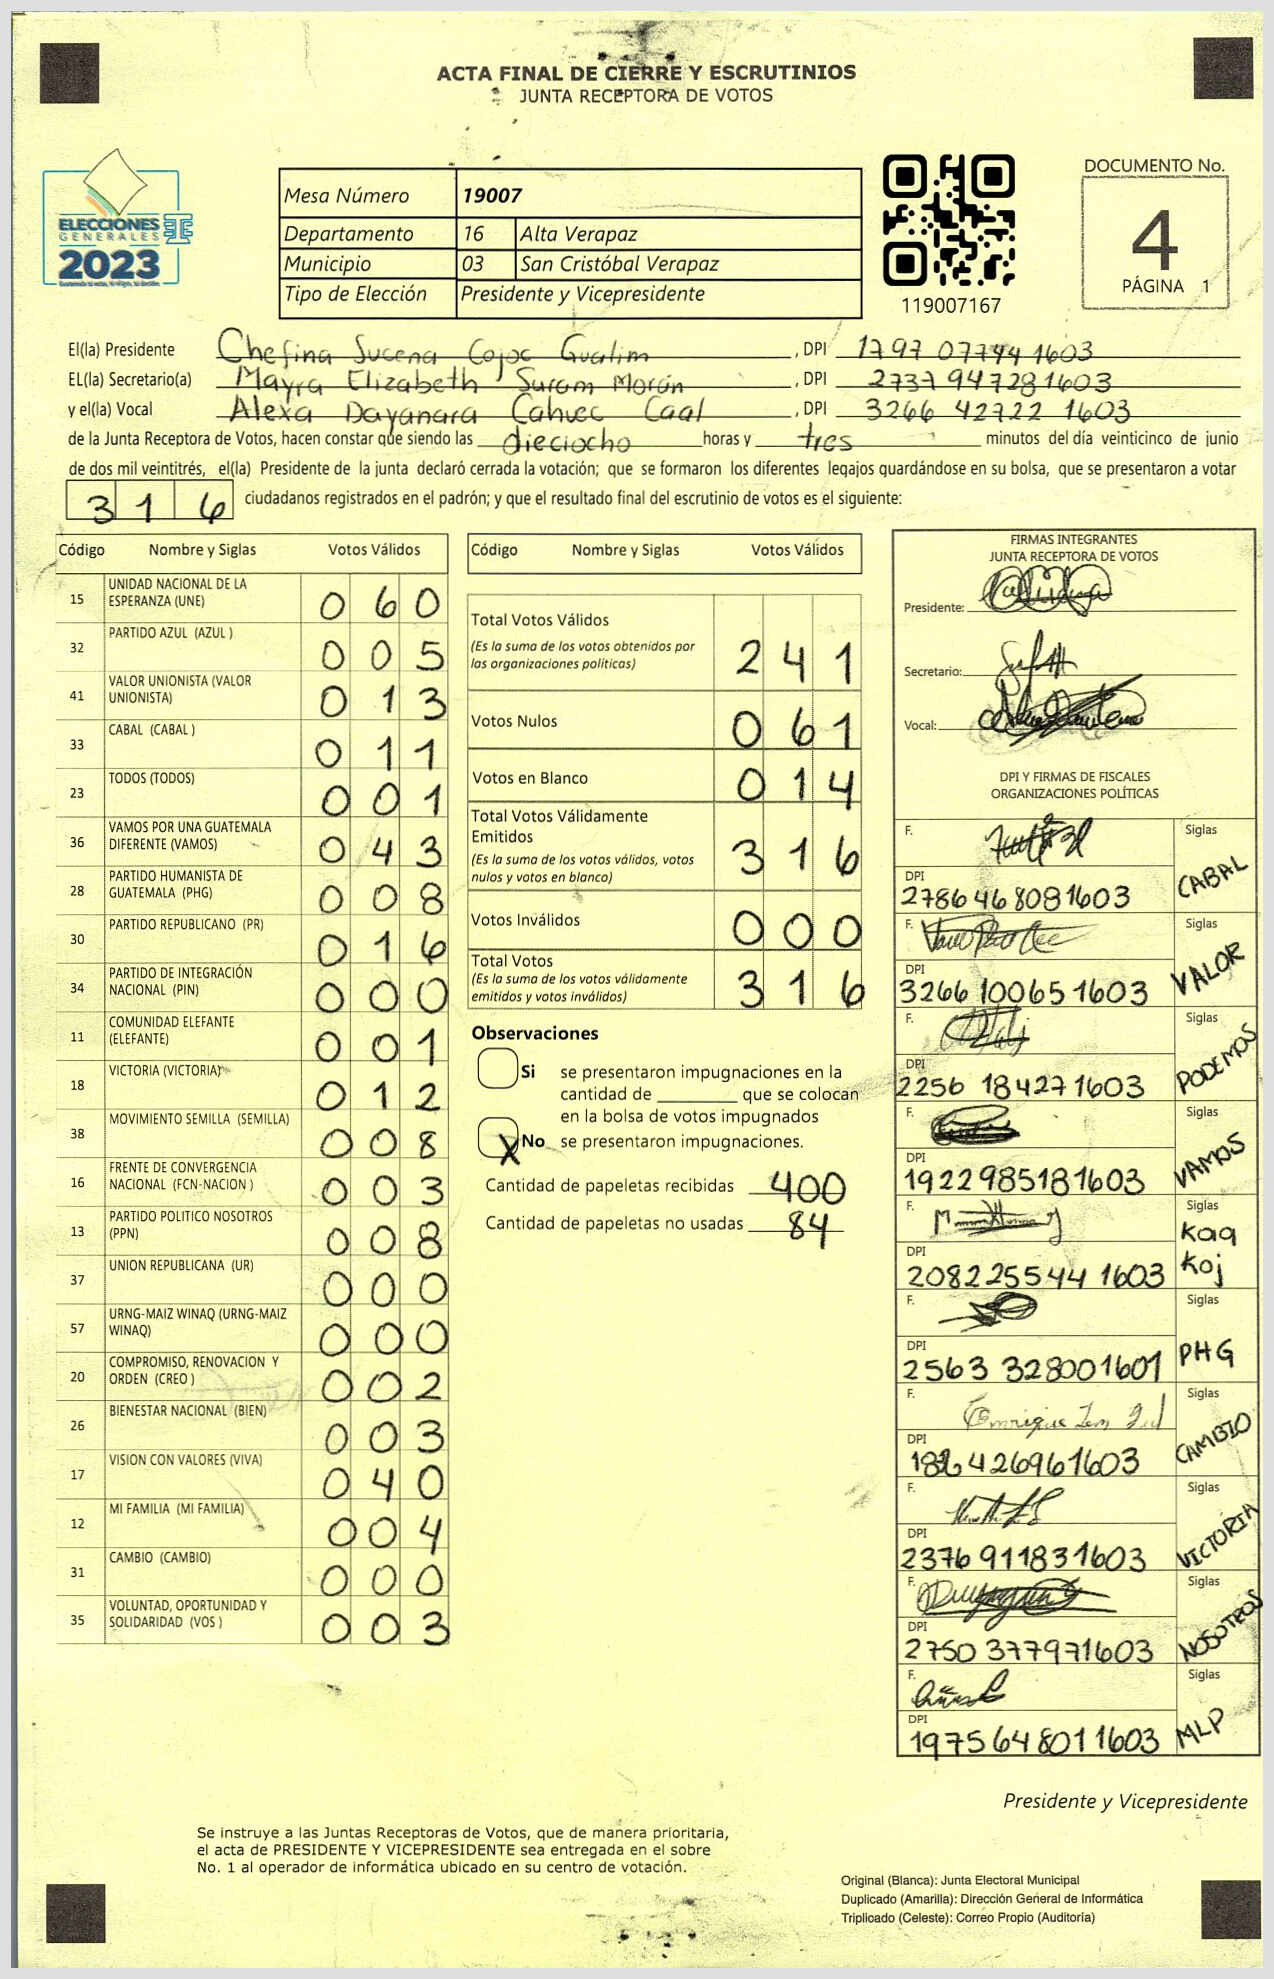 ACTA FINAL DE CIERRE Y ESCRUTINIOS
JUNTA RECEPTORA DE VOTOS
ELECCIONES
GENERALES
2023
Mesa Número 19007
Departamento 16 Alta Verapaz
Municipio 03 San Cristóbal Verapaz
Tipo de Elección Presidente y Vicepresidente
119007167
DOCUMENTO No.
4
PÁGINA 1
El(la) Presidente Chefina Sucena Cojoc Gualim , DPI 1797 07744 1603
EL(la) Secretario(a) Mayra Elizabeth Suram Morán , DPI 2737 94728 1603
y el(la) Vocal Alexa Dayanara Cahuec Caal , DPI 3266 42722 1603
de la Junta Receptora de Votos, hacen constar que siendo las dieciocho horas y tres minutos del día veinticinco de junio
de dos mil veintitrés, el(la) Presidente de la junta declaró cerrada la votación; que se formaron los diferentes legajos guardándose en su bolsa, que se presentaron a votar
316 ciudadanos registrados en el padrón; y que el resultado final del escrutinio de votos es el siguiente:
Código Nombre y Siglas Votos Válidos
15 UNIDAD NACIONAL DE LA ESPERANZA (UNE) 060
32 PARTIDO AZUL (AZUL ) 005
41 VALOR UNIONISTA (VALOR UNIONISTA) 013
33 CABAL (CABAL ) 011
23 TODOS (TODOS) 001
36 VAMOS POR UNA GUATEMALA DIFERENTE (VAMOS) 043
28 PARTIDO HUMANISTA DE GUATEMALA (PHG) 008
30 PARTIDO REPUBLICANO (PR) 016
34 PARTIDO DE INTEGRACIÓN NACIONAL (PIN) 000
11 COMUNIDAD ELEFANTE (ELEFANTE) 001
18 VICTORIA (VICTORIA) 012
38 MOVIMIENTO SEMILLA (SEMILLA) 008
16 FRENTE DE CONVERGENCIA NACIONAL (FCN-NACION ) 003
13 PARTIDO POLITICO NOSOTROS (PPN) 008
37 UNION REPUBLICANA (UR) 000
57 URNG-MAIZ WINAQ (URNG-MAIZ WINAQ) 000
20 COMPROMISO, RENOVACION Y ORDEN (CREO ) 002
26 BIENESTAR NACIONAL (BIEN) 003
17 VISION CON VALORES (VIVA) 040
12 MI FAMILIA (MI FAMILIA) 004
31 CAMBIO (CAMBIO) 000
35 VOLUNTAD, OPORTUNIDAD Y SOLIDARIDAD (VOS ) 003
Código Nombre y Siglas Votos Válidos
Total Votos Válidos 241
(Es la suma de los votos obtenidos por
las organizaciones políticas)
Votos Nulos 061
Votos en Blanco 014
Total Votos Válidamente
Emitidos 316
(Es la suma de los votos válidos, votos
nulos y votos en blanco)
Votos Inválidos 000
Total Votos 316
(Es la suma de los votos válidamente
emitidos y votos inválidos)
Observaciones
Si se presentaron impugnaciones en la
cantidad de ________ que se colocan
en la bolsa de votos impugnados
X No se presentaron impugnaciones.
Cantidad de papeletas recibidas 400
Cantidad de papeletas no usadas 84
FIRMAS INTEGRANTES
JUNTA RECEPTORA DE VOTOS
Presidente:
Secretario:
Vocal:
DPI Y FIRMAS DE FISCALES
ORGANIZACIONES POLÍTICAS
F. Siglas
DPI 2786 46808 1603 CABAL
F. Siglas
DPI 3266 10065 1603 VALOR
F. Siglas
DPI 2256 18427 1603 PODEMOS
F. Siglas
DPI 1922 98518 1603 VAMOS
F. Siglas
DPI 2082 25544 1603 Kaq Koj
F. Siglas
DPI 2563 32800 1601 PHG
F. Siglas
DPI 42696 1603 CAMBIO
F. Siglas
DPI 2376 91183 1603 VICTORIA
F. Siglas
DPI 2750 37797 1603 NOSOTROS
F. Siglas
DPI 1975 64801 1603 MLP
Presidente y Vicepresidente
Se instruye a las Juntas Receptoras de Votos, que de manera prioritaria,
el acta de PRESIDENTE Y VICEPRESIDENTE sea entregada en el sobre
No. 1 al operador de informática ubicado en su centro de votación.
Original (Blanca): Junta Electoral Municipal
Duplicado (Amarilla): Dirección General de Informática
Triplicado (Celeste): Correo Propio (Auditoría)